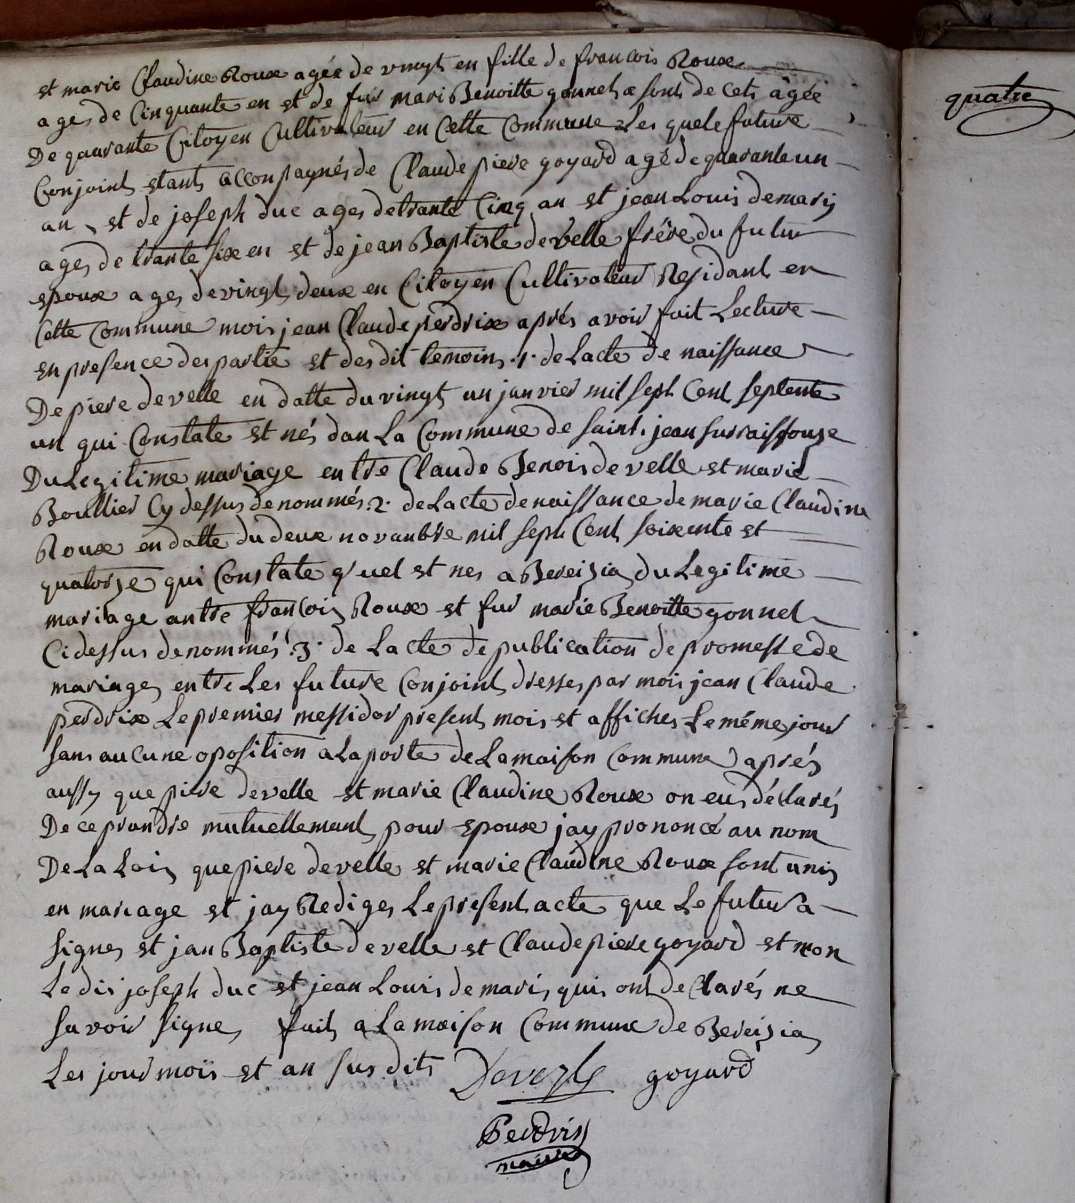 et marie Claudine Roux agée de vingt en fille de francois Roux
ages de Cinquante en et de fue mari Benoitte gonnel
De quarante Citoyen Cultivateur en Cette Commune Les quele future
Conjoint etant acconpagnés de Claude piere goyard agé de quarante un
an, et de joseph duc ages de trante Cinq an et jean Louis demaris
ages de trante six en et de jean Baptiste de velle frère du futur
epoux ages de vingt deux en Citoyen Cultivateur Residant en
Cette Commune mois jean Claude perdrix aprés avoir fait Lecture
en presence des partie et des dit temoins .1. de Lacte de naissance
De piere de velle en datte du vingt un janvier mil seph Cent septente
un qui Constate et nés dan La Commune de saint jean
Du Legitime mariage entre Claude Benois de velle et marie
Boullier Cy dessus denommés .2. de Lacte de naissance de marie Claudine
Roux en datte du deux novanbre mil seph Cent soixente et
quatorze qui Constate q'uel et nes a Bereizia du Legitime
mariage antre francois Roux et fue marie Benoitte gonnel
Ci dessus denommés .3. de Lacte de publication de promesse de
mariages entre Les future Conjoint dresses par mois jean Claude
perdrix Le premier messidor present mois et affiches Le même jour
sans aucune oposition a La porte de La maison Commune aprés
aussy que piere de velle et marie Claudine Roux on eus déclarés
De ce prandre mutuellemant pour epoux jay prononcé au nom
De La Lois que piere de velle et marie Claudine Roux sont unis
en mariage et jay Rediges Le present acte que Le futur a
signes et jan Baptiste de velle et Claude piere goyard et mon
Le dis joseph duc et jean Louis de maris quis ont declarés ne
savoir signe, fait a La maison Commune de Bereizia
Les jour mois et an sus dits Develle goyard
Perdrix
maire
quatre